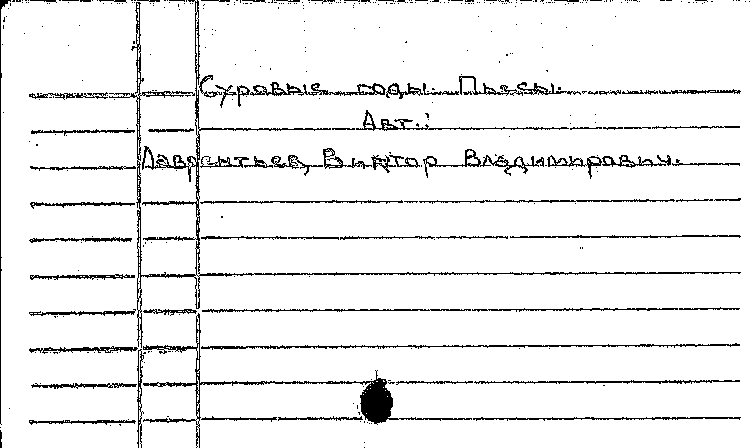 Суровые годы. Пьесы.
Авт.:
Лаврентьев, Виктор Владимирович.